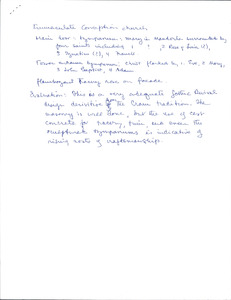 Immaculate Conception church
Main door: tympanum: Mary in mandorla surrounded by
four saints including 1 ? , 2 Rose of Lima (?),
3 Ignatius (?), 4
Tower entrance tympanum: Christ flanked by 1. Eve, 2 Mary,
3 John Baptist, 4 Adam
Flamboyant tracery row on facade
Evaluation: This is a very adequate Gothic Revival
design derivative of the Cram tradition. The
masonry is well done, but the use of cast
concrete for tracery, trim and even the
sculptured tympanums is indicative of
rising costs of craftsmanship.